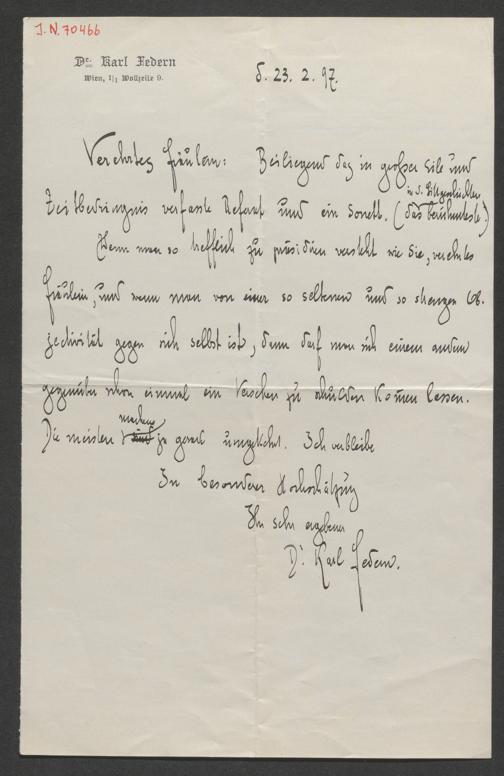 J.N. 70466
Dr. Karl Federn
Wien, 1/1 Wollzeile 9.
d. 23. 2. 97.
Verehrtes Fräulein: Beiliegend das in großer Eile und
in d. Littgeschichten
Zeitbedrängnis verfasste Referat und ein Sonett. (das berühmteste.)
Wenn man so trefflich zu präsidiren versteht wie Sie, verehrtes
Fräulein, und wenn man von einer so seltenen und so strengen Ob-
jectivität gegen sich selbst ist, dann darf man sich einem andern
gegenüber schon einmal ein Versehen zu schulden kommen lassen.
machens
Die meisten ja gerade umgekehrt. Ich verbleibe
In besonderer Hochschätzung
Ihr sehr ergebener
Dr. Karl Federn.